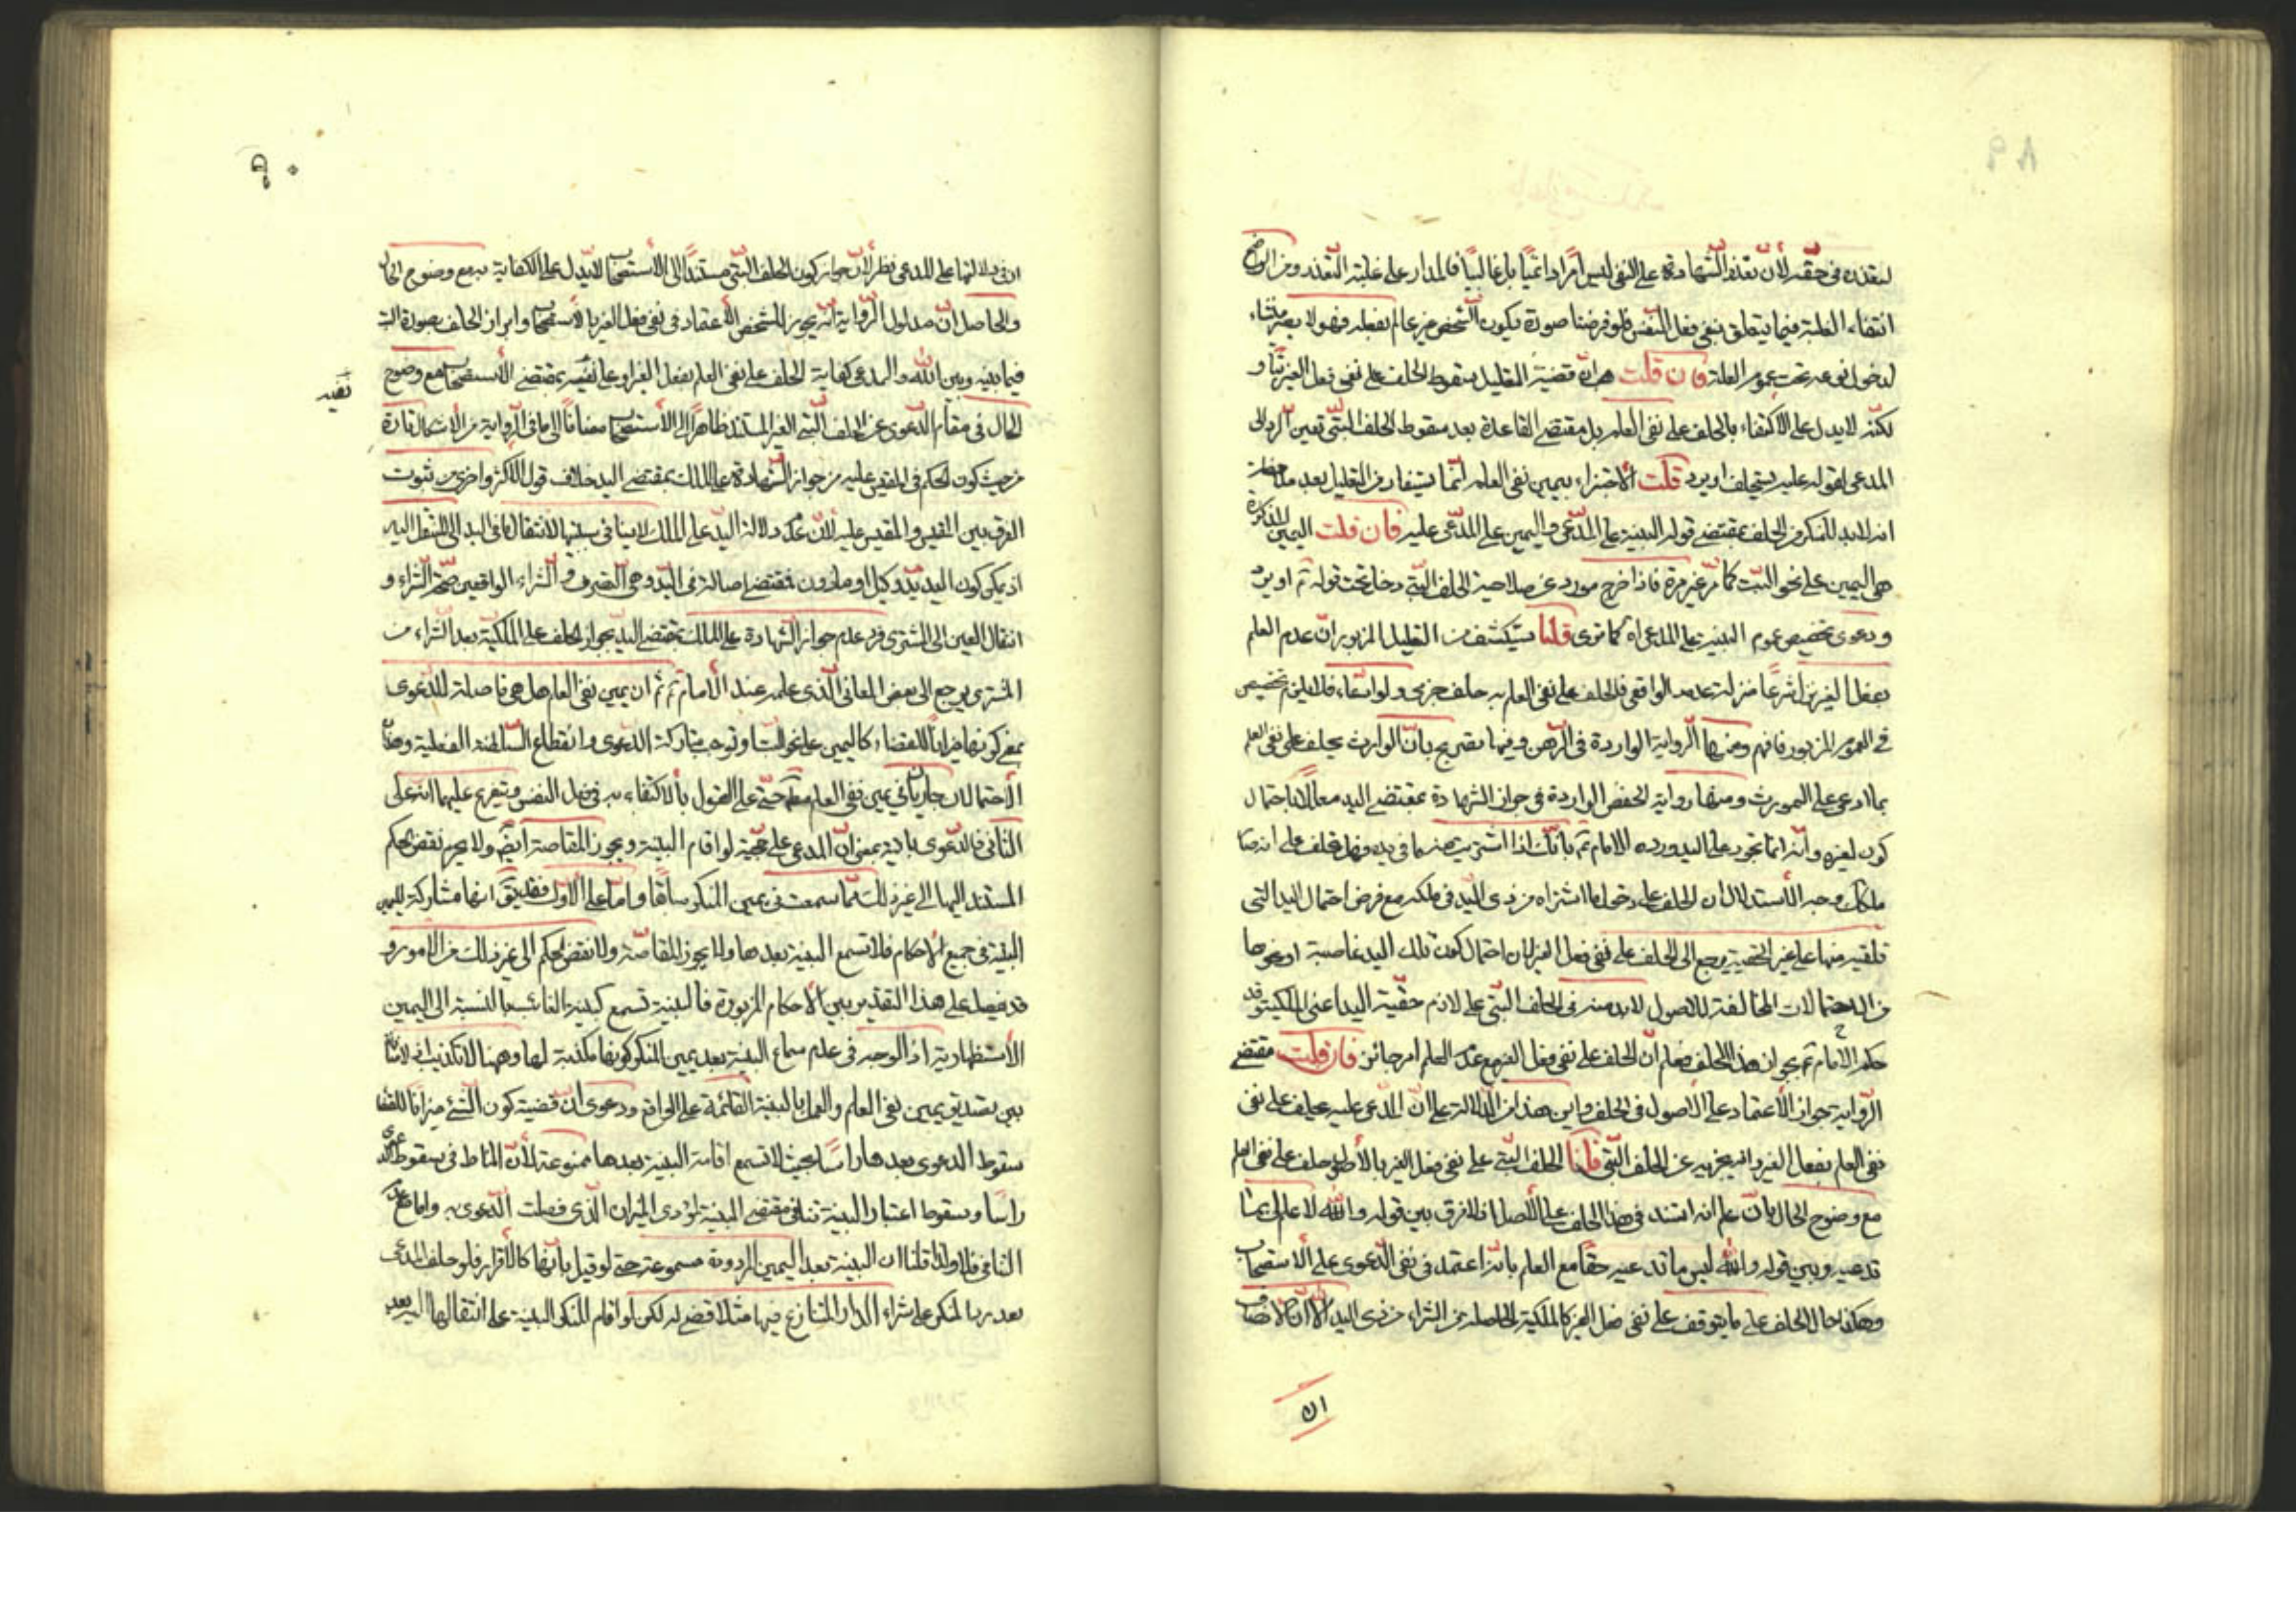 ٨٩
لتعذره فى حقّه لأنّ تعذّر الشهادة على النفى ليس امرًا دائميًا بل غالبيًا فالمدار على غلبة التعذر ومن الواضح
انتفاء الغلبة فيما يتعلق بنفى فعل النفس فلو فرضنا صورة يكون الشخص غير عالم بفعله فهو لا يصير منشاء
لدخول نوعه تحت عموم العلة فان قلت هب انّ قضية التعليل سقوط الحلف على نفى فعل الغير بتًا و
لكنّه لا يدل على الاكتفاء بالحلف على نفى العلم بل مقتضى القاعدة بعد سقوط الحلف البتّى تعين الرد الى
المدعى لقوله عليه يستحلف او يرد قلت الاجتزاء بيمين نفى العلم انّما يستفاد من التعليل بعد ملاحظة
انه لا بد للمنكر من الحلف بمقتضى قوله البينة على المدّعى واليمين على المدّعى عليه فان قلت اليمين للمنكر
هى اليمين على نحو البتّ كما مرّ غير مرة فاذا خرج مورد عن صلاحية الحلف البتّى دخل تحت قوله ع او يرد
ودعوى تخصيص عموم البينة على المدعى اه كما ترى قلنا يستكشف من التعليل المزبور انّ عدم العلم
بفعل الغير نزل شرعًا منزلة عدمه الواقعى فالحلف على نفى العلم به حلف جزمى ولو ادّعاء فلا يلزم تخصيص
فى العموم المزبور فافهم ومنها الرواية الواردة فى الرّهن وفيها تصريح بانّ الوارث يحلف على نفى العلم
بما ادعى على المورث ومنها رواية الحفص الواردة فى جواز الشهادة بمقتضى اليد معلّلا باحتمال
كون لغيره وانّه انما تجوز على اليد ورده الامام ع بانّك اذا اشتريت منه ما فى يده فهل تحلف على انه صار
ملكك وجه الأستدلال ان الحلف على دخول ما اشتراه من ذى اليد فى ملكه مع فرض احتمال اليد التى
تلقيه منها على غير الحقيّة يرجع الى الحلف على نفى فعل الغير لان احتمال كون تلك اليد غاصبة او نحوها
من الاحتمالات المخالفة للاصول لا بد منه فى الحلف البتّى على لازم حقّية اليد اعنى الملكية وقد
حكم الامام ع بجواز هذا الحلف فعلم انّ الحلف على نفى فعل الغير مع عدم العلم امر جائز فان قلت مقتضى
الرّواية جواز الأعتماد على الاصول فى الحلف واين هذا من الدلالة على انّ المدعى عليه يحلف على نفى
نفى العلم بفعل الغير وانه يجزيه عن الحلف البتّى قلنا الحلف البتّى على نفى فعل الغير بالأصل هو حلف على نفى العلم
مع وضوح الحال بان علم انه استند فى هذا الحلف على الأصل اذ لا فرق بين قوله واللّه لا علم لى بما
تدعيه وبين قوله واللّه ليس ما تدعيه حقا مع العلم بانّه اعتمد فى نفى الدّعوى على الأستصحاب
وهكذا حال الحلف على ما يتوقف على نفى فعل الغير كالملكية الحاصلة من الشراء من ذى اليد الا انّ الانصاف
ان
٩٠
ان فى دلالتها على المدعى نظر لأنّ جواز كون الحلف البتّى مستندًا الى الأستصحاب لا يدل على الكفاية به مع وضوح الحال
والحاصل انّ مدلول الرّواية انّه يجوز للشخص الأعتماد فى نفى فعل الغير بالأستصحاب وابراز الحلف بصورة البت
فيما بينه وبين اللّه والمدعى كفاية الحلف على نفى العلم بفعل الغير او على نفيه بمقتضى الأستصحاب مع وضوح
الحال فى مقام الدّعوى عن الحلف البتّى الغير المستند ظاهرًا الى الأستصحاب مضافًا الى ما فى الرّواية من الأشكال تارة
من حيث كون الحكم فى المقيس عليه من جواز الشهادة على الملك بمقتضى اليد خلاف قول الاكثر واخرى من ثبوت
الفرق بين المقيس والمقيس عليه لانّ عدم دلالة اليد على الملك لا ينافى سببيّتها لانتقال ما فى اليد الى المنتقل اليه
اذ يمكن كون اليد يد وكيل او ماذون فمقتضى اصالة فى اليد وهى التصرف والشراء الواقعين صحّة الشراء و
انتقال العين الى المشترى فرد عدم جواز الشهادة على الملك بمقتضى اليد بجواز الحلف على الملكيّة بعد الشراء من
المشترى يرجع الى بعض المعانى الّذى علمه عند الأمام ع ثم ان يمين نفى العلم هل هى فاصلة للدّعوى
بمعنى كونها ميزانًا للقضاء كاليمين على نحو البتّ او توجب متاركة الدعوى وانقطاع السّلطنة الفعلية وهذان
الأحتمالان جاريان فى يمين نفى العلم مطلقا حتّى على القول بالاكتفاء به فى فعل النفس ويتفرع عليهما انه على
الثانى فالدّعوى باقية بمعنى انّ المدعى على حجّيّة لو اقام البيّنة ويجوز المقاصة ايضًا ولا يحرم نقض الحكم
المستند اليها الى غير ذلك ممّا سمعت فى يمين المنكر سابقًا وامّا على الأوّل فقد يق انها مشاركة لليمين
البتّية فى جميع الأحكام فلا تسمع البيّنة بعدها ولا يجوز المقاصّة ولا نقض الحكم الى غير ذلك من الامور و
قد يفصل على هذا التقدير بين الأحكام المزبورة فالبينة تسمع كبينة الغائب بالنسبة الى اليمين
الأستظهارية اذ الوجه فى عدم سماع البينة بعد يمين المنكر كونها مكذبة لها وههنا لا تكذيب اذ لا منافاة
بين تصديق يمين نفى العلم والعمل بالبينة القائمة على الواقع ودعوى انّ قضية كون الشئ ميزانًا للقضاء
سقوط الدعوى بعدها راسًا بحيث لا تسمع اقامة البينة بعدها ممنوعة لأنّ المناط فى سقوط الدعوى
راسا وسقوط اعتبار البينة تنافى مقتضى البينة لمؤدى الميزان الّذى فصلت الدّعوى به واما مع عدم
التنافى فلا ولذا قلنا ان البينة بعد اليمين المردودة مسموعة حتى لو قيل بانّها كالأقرار فلو حلف المدعى
بعد رد المنكر على شراء الدار المتنازع فيها مثلا قضى له لكن لو اقام المنكر البينة على انتقالها اليه بعد